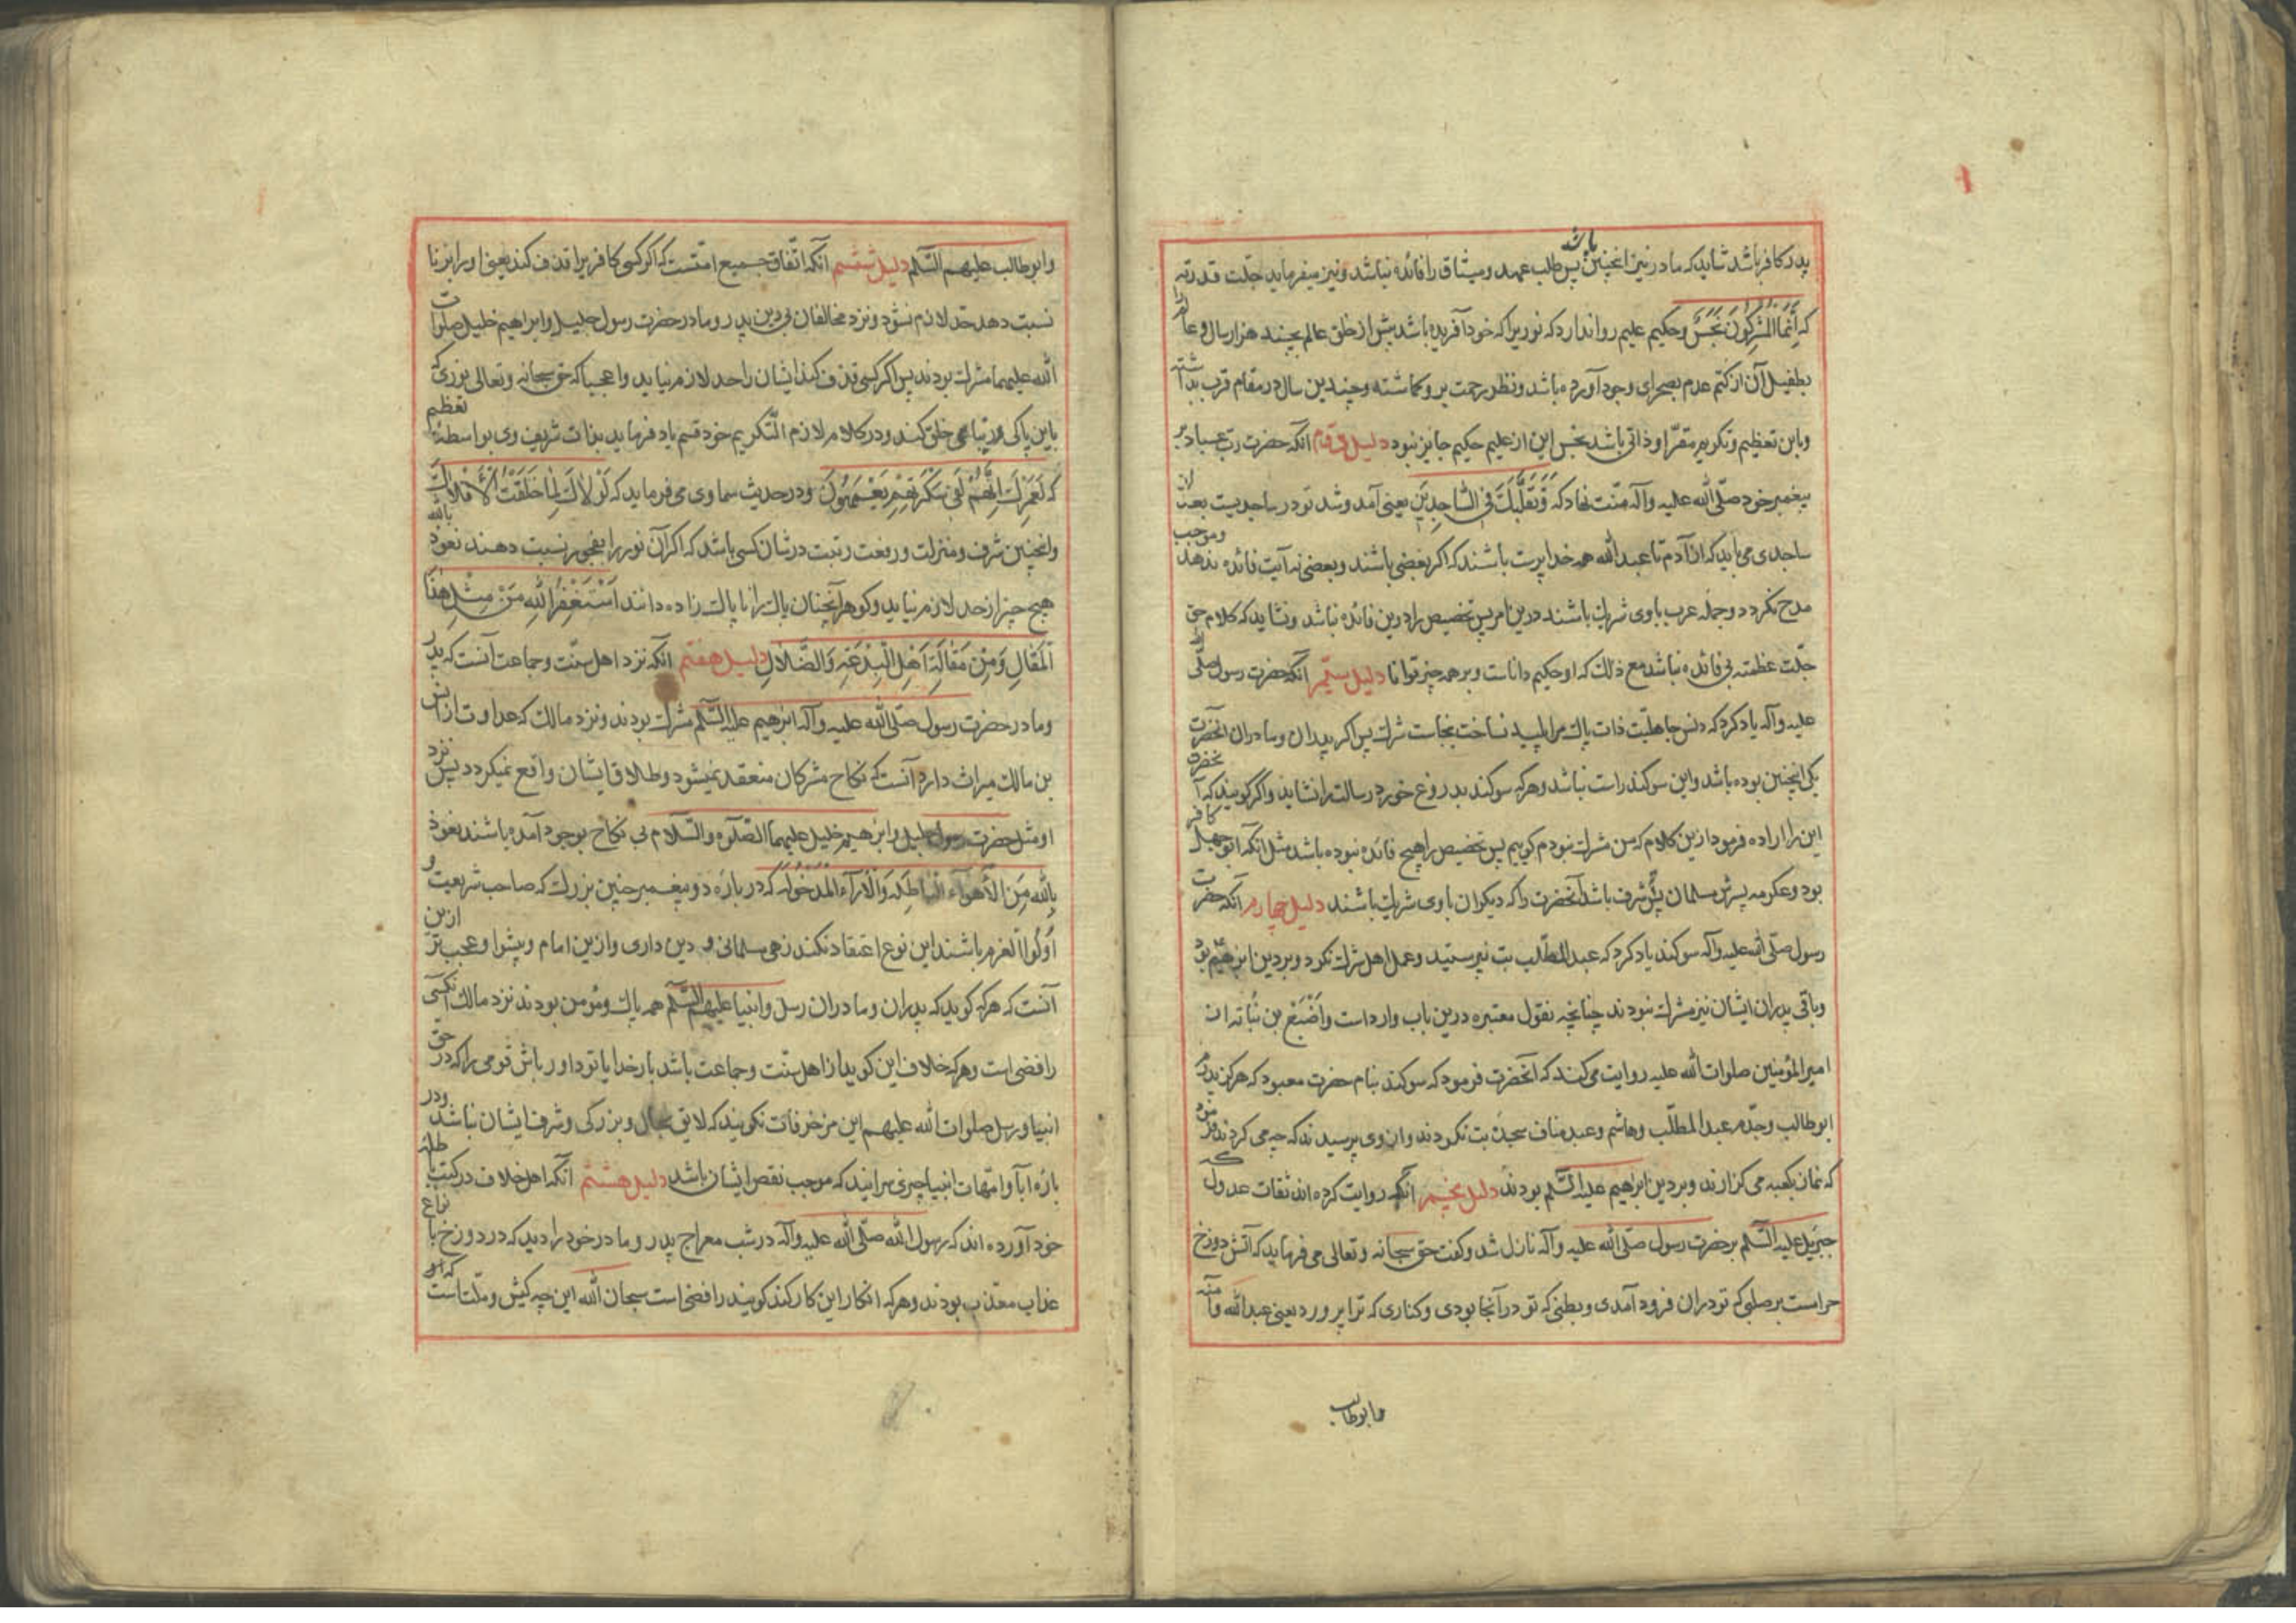 پدر کافر باشد شاید که مادر نیز انچنین باشد پس طلب عهد و میثاق را فائده نباشد و نیز میفرماید جلّت قدرته
که اِنَّمَا الْمُشْرِکُونَ نَجَسٌ و حکیم علیم روا ندارد که نوریرا که خود آفریده باشد پیش از خلق عالم بچند هزار سال و عالم را
بطفیل آن از کتم عدم بصحرای وجود آورده باشد و نظر رحمت برو کماشته و چندین سال در مقام قرب بداشته
و باین تعظیم و تکریم مقرّ او ذاتی باشد نجس این از علیم حکیم جایز نبود دلیل دوم آنکه حضرت رب عباد بر
پیغمبر خود صلّی الله علیه وآله منّت نهاد که وَتَقَلُّبَكَ فِی السَّاجِدِینَ یعنی آمد و شد تو در ساجدیست بعد
ساجدی می باید که از آدم تا عبدالله همه خدا پرست باشند که اکر بعضی باشند و بعضی نه آیت فائده ندهد و موجب
مدح نکردد و جمله عرب باوی شریك باشند درین امر پس تخصیص را درین فائده نباشد و نشاید که کلام حق
جلّت عظمته بی فائده نباشد مع ذلك که او حکیم داناست و بر همه چیز توانا دلیل سیّم آنکه حضرت رسول صلّی الله
علیه وآله یاد کرد که دنس جاهلیّت ذات پاك مرا پلید نساخت بنجاست شرك پس اکر پدران و مادران آنحضرت
یکی اینچنین بوده باشد و این سوکند راست نباشد و هرکه سوکند بدروغ خورد رسالت را نشاید و اکر کویند که آنحضرت
این را اراده فرمود ازین کلام که من مشرك نبودم کوییم پس تخصیص را هیچ فائده نبوده باشد مثل آنکه ابوجهل کافر
بود و عکرمه پسرش مسلمان پس شرف باشد آنحضرت را که دیکران باوی شریك باشند دلیل چهارم آنکه حضرت
رسول صلّی الله علیه وآله سوکند یاد کرد که عبدالمطّلب بت نپرستید و عمل اهل شرك نکرد و بر دین ابرهیم بود
و باقی پدران ایشان نیز مشرك نبودند چنانچه نقول معتبره درین باب وارد است و اَصْبَغ بن نُباته از
امیرالمؤمنین صلوات الله علیه روایت می کند که آنحضرت فرمود که سوکند بنام حضرت معبود که هرکز پدرم
ابوطالب و جدّم عبدالمطّلب و هاشم و عبدمناف سجدۀ بت نکردند و از وی پرسیدند که چه می کردند فرمود
که نماز بکعبه می کزاردند و بر دین ابراهیم علیه السّلم بودند دلیل پنجم آنکه روایت کرده اند ثقات عدول که
جبرئیل علیه السّلم بر حضرت رسول صلّی الله علیه وآله نازل شد و کفت حق سبحانه و تعالی می فرماید که آتش دوزخ
حرامست بر صلبی که تو در ان فرود آمدی و بطنی که تو در آنجا بودی و کناری که ترا پرورد یعنی عبدالله و آمنه
وابوطالب
وابوطالب علیهم السّلم دلیل ششم آنکه اتّفاق جمیع امّتست که اکر کسی کافریرا قذف کند یعنی اورا بزنا
نسبت دهد حد لازم نشود و نزد مخالفان بی دین پدر و مادر حضرت رسول جلیل و ابراهیم خلیل صلوات
الله علیهما مشرك بودند پس اکر کسی قذف کند ایشان را حد لازم نیاید واعجبا که حق سبحانه و تعالی نوری که
باین پاکی خلق کند و در کلام لازم التّکریم خود قسم یاد فرماید بذات شریف وی بواسطۀ تعظیم
که لَعَمْرُكَ اِنَّهُمْ لَفِی سَکْرَتِهِمْ یَعْمَهُونَ و در حدیث سماوی می فرماید که لَوْلَاكَ لَمَا خَلَقْتُ الْأَفْلَاكَ
و اینچنین شرف و منزلت و رفعت رتبت در شان کسی باشد که اکر آن نور را بفجور نسبت دهند نعوذ بالله
هیچ چیز از حد لازم نیاید و کوهر آنچنان پاك را ناپاك زاده دانند اَسْتَغْفِرُ اللّٰهَ مِنْ مِثْلِ هٰذَا
الْمَقَالِ وَمِنْ مَقَالَةِ اَهْلِ الْبِدْعَةِ وَالضَّلَالِ دلیل هفتم آنکه نزد اهل سنّت و جماعت آنست که پدر
و مادر حضرت رسول صلّی الله علیه وآله ابرهیم علیه السّلم مشرك بودند و نزد مالك که عداوت از انس
بن مالك میراث دارد آنست که نکاح مشرکان منعقد نمیشود و طلاق ایشان واقع نمیکردد پس نزد
او مثل حضرت رسول جلیل و ابرهیم خلیل علیهما الصّلوة والسّلام بی نکاح بوجود آمده باشند نعوذ
بِاللّٰهِ مِنَ الْاَهْوَاءِ الْبَاطِلَةِ وَالْآرَاءِ الْمَدْخُولَةِ که در بارۀ دو پیغمبر چنین بزرك که صاحب شریعت و
اُولُوا العَزم باشند این نوع اعتقاد نکنند زهی مسلمانی و دین داری و ازین امام و پیشوا و عجب تر ازین
آنست که هرکه کوید که پدران و مادران رسل و انبیا علیهم السّلم همه پاك و مؤمن بودند نزد مالك آنکس
رافضی است و هرکه خلاف این کوید از اهل سنّت و جماعت باشد بار خدایا تو داور باش قومی را که در حق
انبیا و رسل صلوات الله علیهم این مزخرفات نکویند که لایق بحال و بزرکی و شرف ایشان نباشد و در
بارۀ آبا و امّهات انبیا چیزی سرایند که موجب نقص ایشان باشد دلیل هشتم آنکه اهل خلاف در کتب باطلۀ
خود آورده اند که رسول الله صلّی الله علیه وآله در شب معراج پدر و مادر خود را دید که در دوزخ بانواع
عذاب معذّب بودند و هرکه انکار این کار کند کویند رافضی است سبحان الله این چه کیش و ملّت است که او